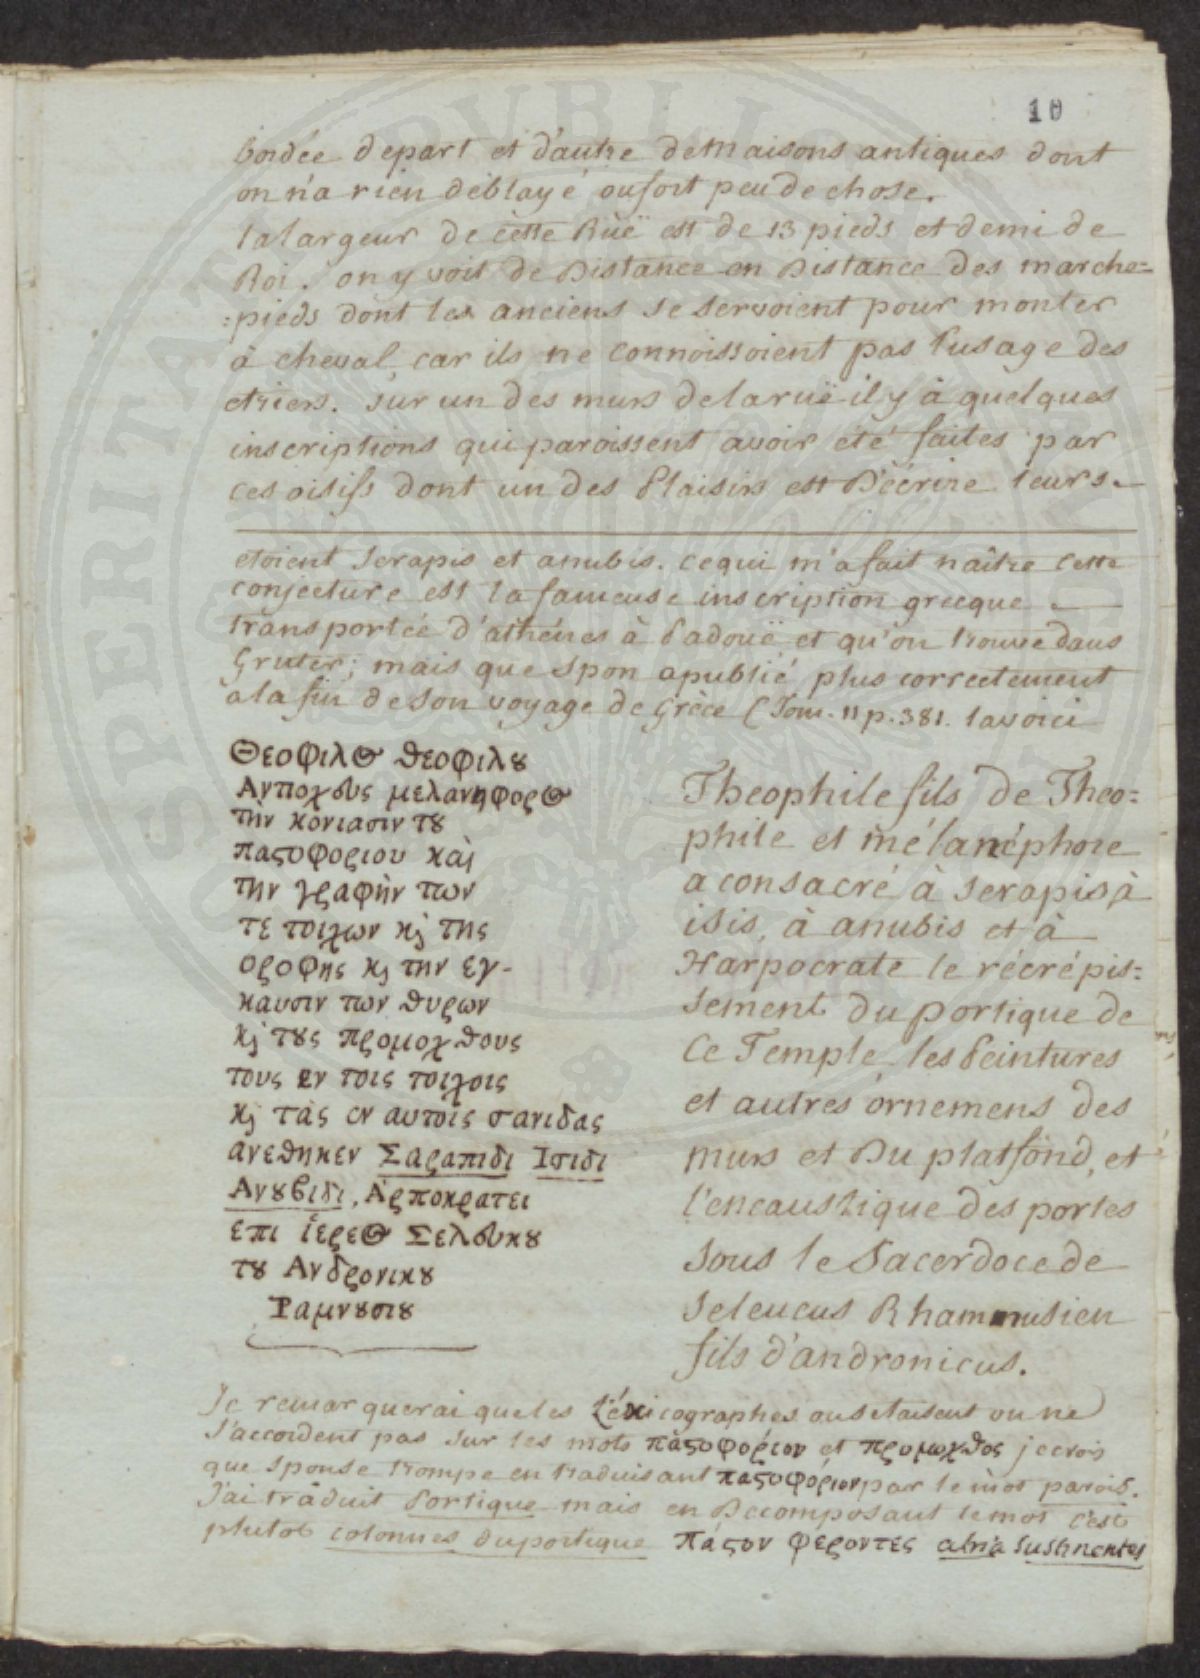 10
bordée depart et d'autre de Maisons antiques dont
on n'a rien déblayé ou fort peu de chose.
la largeur de cette Rüe est de 13 pieds et demi de
Roi. on y voit de Distance en Distance des marche=
=pieds dont les anciens se servoient pour monter
à cheval, car ils ne connoissoient pas l'usage des
etriers. sur un des murs de la ruë il y à quelques
inscriptions qui paroissent avoir été faites par
ces oisifs dont un des Plaisirs est D'écrire leurs
etoient Serapis et anubis. ce qui m'a fait naître cette
conjecture est la fameuse inscription grecque
transportée d'athénes à Padouë et qu'on trouve dans
Gruter; mais que Spon a publié plus correctement
a la fin de son voyage de Grèce (Tom. 11 p. 381. la voici
Θεοφιλȣ θεοφιλȣ
Αντιοχευς μελανηφορȣ
τὴν κονιασιν τȣ
παϛοφοριου καὶ
την γραφὴν των
τε τοιχων κ̀ της
οροφης κ̀ την εγ-
καυσιν των θυρων
κ̀ τȣς προμοχθους
τους εν τοις τοιχοις
κ̀ τὰς εν αυτοῖς σανιδας
ανεθηκεν Σαραπιδι Ισιδι
Ανȣβιδι, Ἁρποκρατει
επι ἱερεως Σελευκȣ
τȣ Ανδρονικȣ
Ραμνȣσιȣ
Theophile fils de Theo=
phile et mélanéphore
a consacré à Serapis à
isis, à anubis et à
Harpocrate le récrépis=
sement du portique de
Ce Temple, les Peintures
et autres ornemens des
murs et Du platfond, et
l'encaustique des portes
sous le Sacerdoce de
Seleucus Rhamnusien
fils d'andronicus.
Je remarquerai que les Léxicographes ou se taisent ou ne
s'accordent pas sur les mots πὰϛοφορίον et προμωχθος je crois
que Spon se trompe en traduisant παϛοφόριον par le mot parois.
J'ai traduit Portique mais en Decomposant le mot c'est
plutot colonnes du portique πάϛον φεροντες atria sustinentes